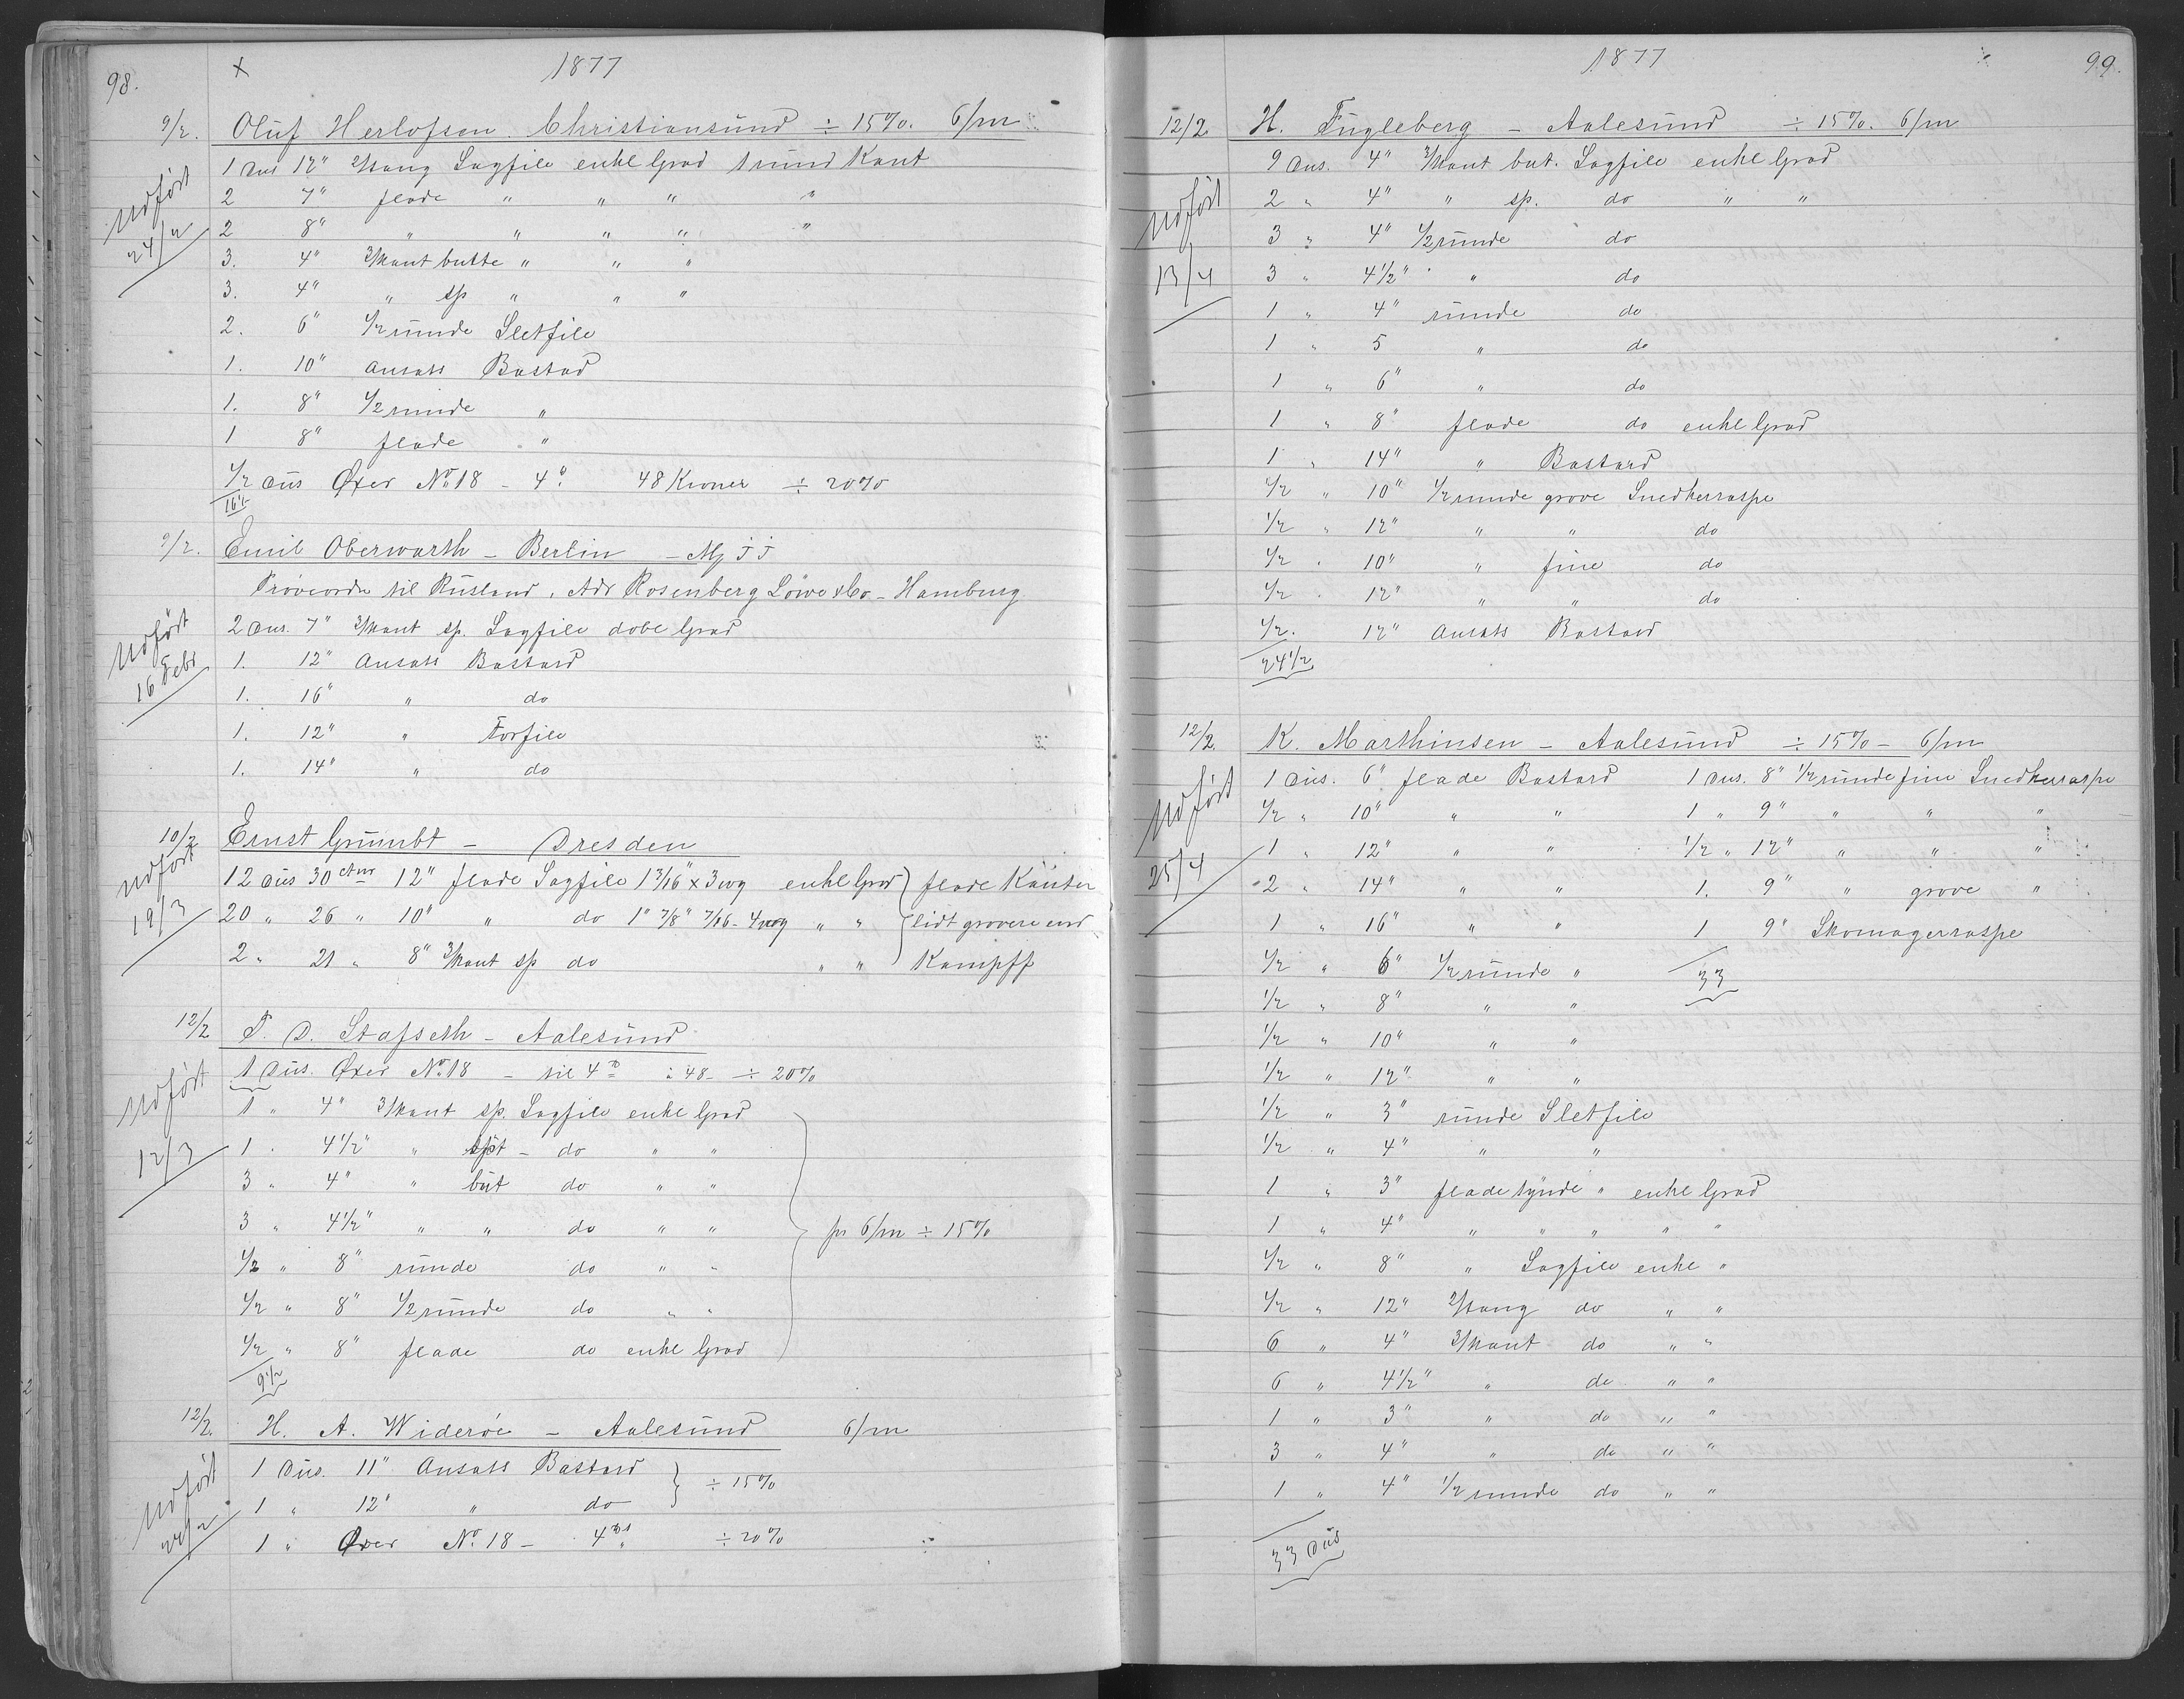 98.
1877
9/2. Oluf Herlofsen. Christiansund ÷ 15%. 6/m
Udført 24/2
1 Dus 12" 2/tang Sagfile enkl Grad 1 rund Kant
2 7" flade " " " "
2 8" " " " " "
3. 4" 3/kant butte " " "
3. 4" " sp " " "
2. 6" 1/2 runde Sletfile
1. 10" Ansats Bastad
1. 8" 1/2 runde "
1 8" flade "
1/2 Dus Øxer No 18 - 4" 48 Kroner ÷ 20%
16 1/2
9/2. Emil Oberwarth - Berlin
Prøveordre til Rusland, Adr Rosenberg Löwe & Co - Hamburg
Udført 16 Febr
2 Dus. 7" 3/kant sp. Sagfile dobl Grad
1. 12" Ansats Bastard
1. 16" " do
1. 12" " Forfile
1. 14" " do
10/2 Ernst Grumbt - Dresden
Udført 19/3
12 Dus 30 ctm 12" flade Sagfile 1 3/16" x 3 wg enkl Grad flade Kanter
20 " 26 " 10" " do 1" 7/8" 7/16 - 4 wg " " lidt grovere end
2 " 21 " 8" 3/kant sp do " " Kampff
12/2 P. D. Stafseth - Aalesund
Udført 12/3
1 Dus. Øxer No 18 - til 4 " 48 - ÷ 20%
1 " 4" 3/kant sp. Sagfile enkl Grad
1 . 4 1/2" " spt - do " "
3 " 4" " but do " "
3 " 4 1/2" " " do " "
pr 6/m ÷ 15%
1/2 " 8" runde do " "
1/2 " 8" 1/2 runde do " "
1/2 " 8" flade do enkl Grad
9 1/2
12/2. H. A. Widerøe - Aalesund 6/m
Udført 24/2
1 Dus. 11" Ansats Bastard
÷ 15%
1 " 12" " do
1 " Øxer No 18 - 4 ÷ 20%
1877
99.
12/2. H. Fugleberg - Aalesund ÷ 15%. 6/m
Udført 13/4
9 Dus. 4" 3/kant but. Sagfile enkl Grad
2 " 4" " sp. do " "
3 " 4" 1/2 runde do
3 " 4 1/2" " do
1 " 4" runde do
1 " 5 " do
1 " 6" " do
1 " 8" flade do enkl Grad
1 " 14" " Bastard
1/2 " 10" 1/2 runde grove Snedkerraspe
1/2 " 12" " " do
1/2 " 10" " fine do
1/2 " 12" " " do
1/2. 12" Ansats Bastard
24 1/2
12/2. K. Marthinsen - Aalesund ÷ 15% - 6/m
Udført 25/4
1 Dus. 6" flade Bastard 1 Dus. 8" 1/2 runde fine Snedkerraspe
1/2 " 10" " " 1 " 9" " " "
1 " 12" " " 1/2 " 12" " " "
2 " 14" " " 1. 9" " grove "
1 " 16" " " 1 9" Skomagerraspe
1/2 " 6" 1/2 runde " 33
1/2 " 8" " "
1/2 " 10" " "
1/2 " 12" " "
1/2 " 3" runde Sletfile
1/2 " 4" " "
1 " 3" flade tynde " enkl Grad
1 " 4" " " " " "
1/2 " 8" " Sagfile enkl "
1/2 " 12" 2/tang do " "
6 " 4" 3/kant do " "
6 " 4 1/2" " do " "
1 " 3" " do " "
3 " 4" " do " "
1 " 4" 1/2 runde do " "
33 Dus